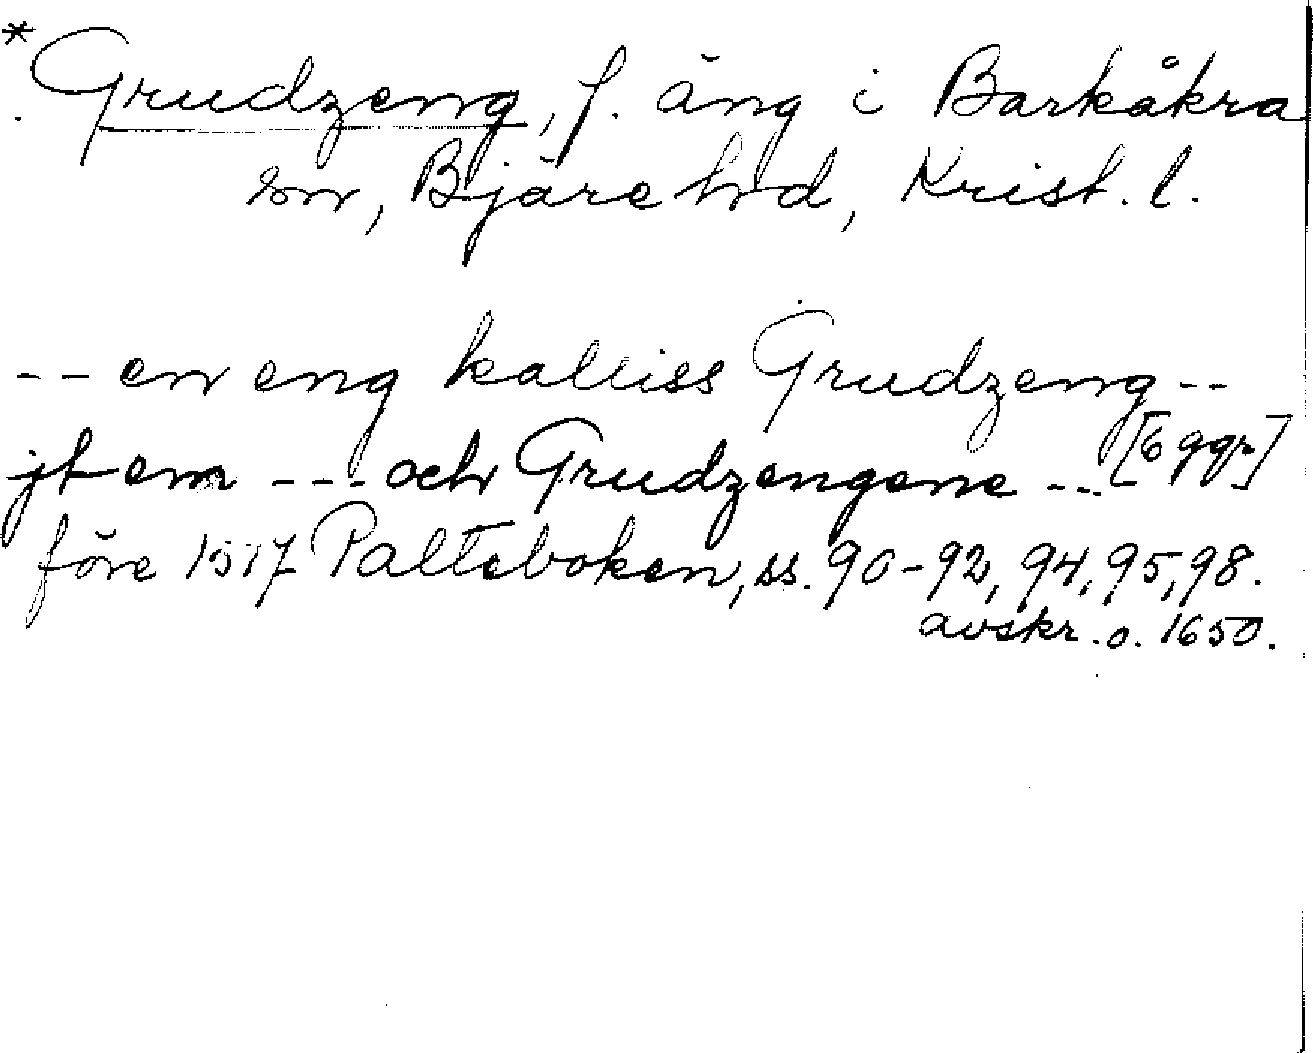 * Grudzeng, f. äng i Barkåkra
sn, Bjäre hd, Krist. l.
-- en eng kalliss Grudzeng --
jtem --- och Grudzengene --- [6 ggr]
före 1517 Palteboken, ss. 90-92, 94, 95, 98.
avskr. o. 1650.